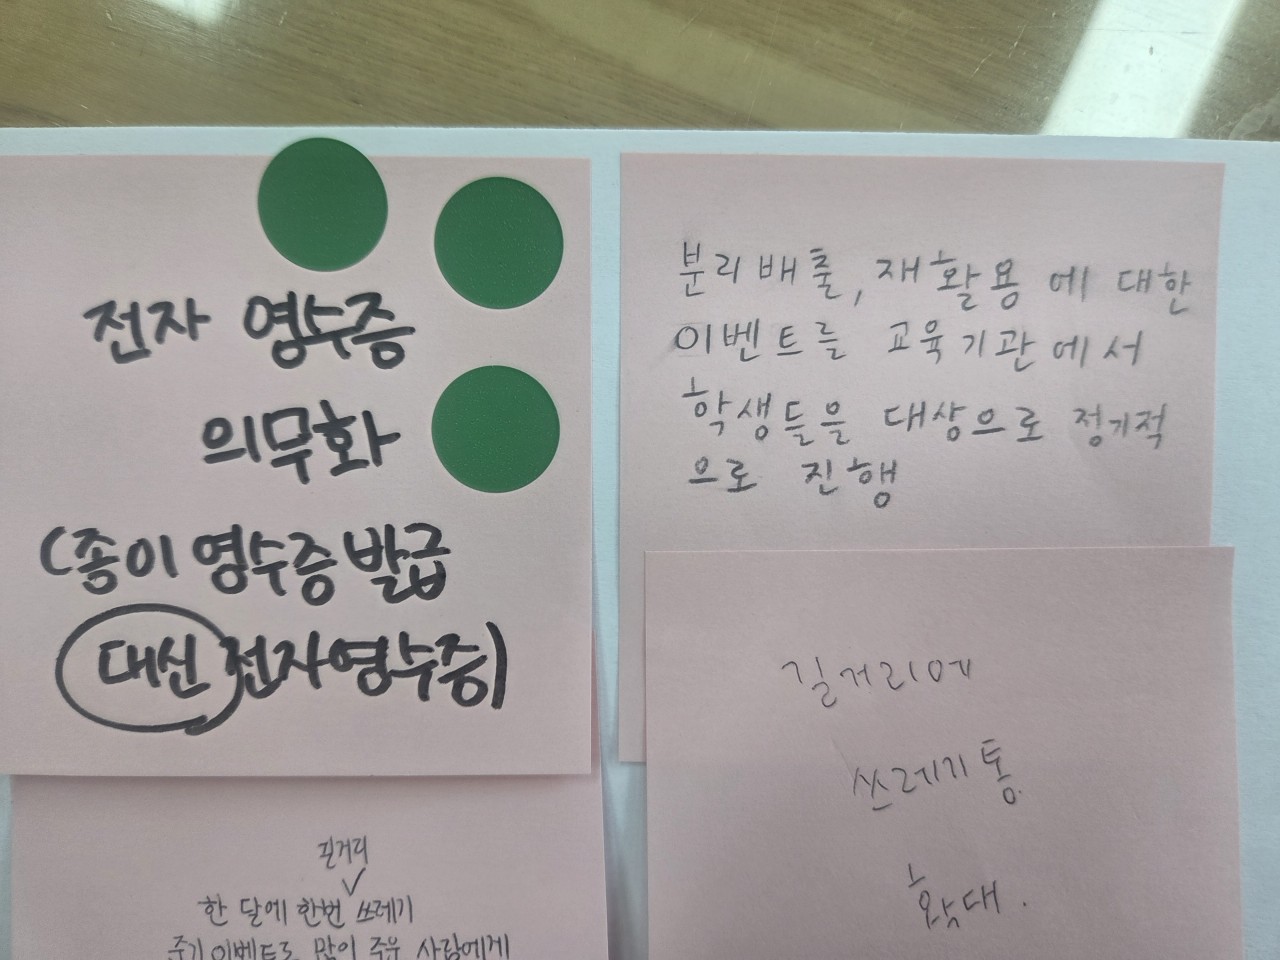 전자 영수증
의무화
(종이 영수증 발급
대신 전자영수증)
분리배출, 재활용 에 대한
이벤트를 교육기관에서
학생들을 대상으로 정기적
으로 진행
길거리에
쓰레기통
확대.
길거리
한 달에 한번 쓰레기
줍기 이벤트로 많이 주운 사람에게